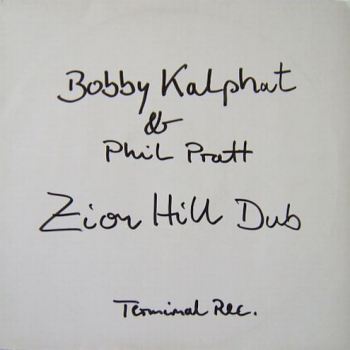 Bobby Kalphat
&
Phil Pratt
Zion Hill Dub
Terminal Rec.